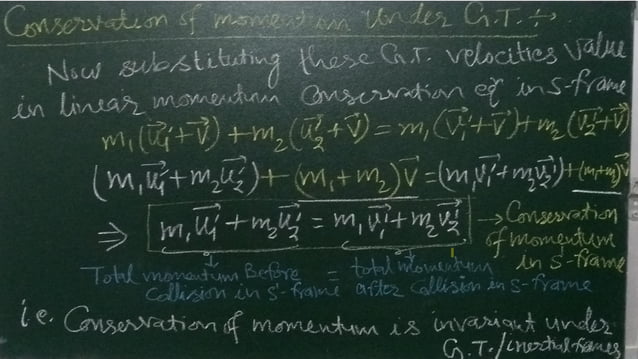 Conservation of momentum under G.T. :→.
Now substituting these G.T. velocities value
in linear momentum Conservation eqⁿ in S-frame
m₁(u⃗₁'+v⃗) + m₂(u⃗₂'+v⃗) = m₁(v⃗₁'+v⃗) + m₂(v⃗₂'+v⃗)
(m₁u⃗₁'+m₂u⃗₂') + (m₁+m₂)v⃗ = (m₁v⃗₁'+m₂v⃗₂') + (m₁+m₂)v⃗
⇒ m₁u⃗₁' + m₂u⃗₂' = m₁v⃗₁' + m₂v⃗₂' → Conservation
of momentum
in S'-frame
Total momentum Before = total momentum
Collision in S'-frame after Collision in S'-frame
i.e. Conservation of momentum is invariant under
G.T./inertial frames